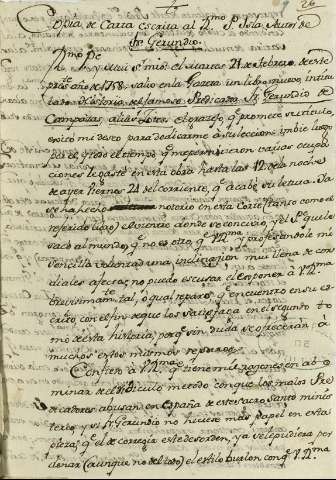 26
Copia de Carta escrita al Rmo. P. Isla Autor de
fr. Gerundio.
Rmo. Pe.
y mui Sr. mio: el martes 21 de febrero de este
preste. año de 1758. salio en la Gazeta un libro nuevo, intitu
lado: Historia del famoso Predicador fr. Gerundio de
Campazas, alias Zotes. El gracejo, que promete su titulo,
excitó mi deseo para dedicarme à su leccion
do el tiempo, que me permitieron varias ocupa
ciones le gasté en esta obra hasta las 12 de la noche
de ayer Viernes 24 del corriente, q acabè su letura. Ya
se ha hecho notorio en esta Corte (tanto como el
referido libro) el oriente donde se concivio, y el q. que le
sacó al mundo, q no es otro, q V. Rma. y profesandole mi
sencilla voluntad una inclinacion mui llena de cor
diales afectos, no puedo escusar el exponer à V. Rma.
brevisimamte. tal, o qual reparo, q encuentro en su es
crito con el fin de que los satisfaga en el segundo to
mo de esta historia; porq sin duda se ofrecerán à
muchos estos mismos reparos.
Confieso à V. Rma. q tiene mil razones en abo
minar de el ridiculo metodo con que los malos Pre
dicadores abusan en España de este sacro Santo minis
terio, y si fr. Gerundio no hiciese mas papel en esta
obra, q el de corregir este desorden, ya se le pudiera per
donar (aunque no del todo) el estilo burlon con q V. Rma.